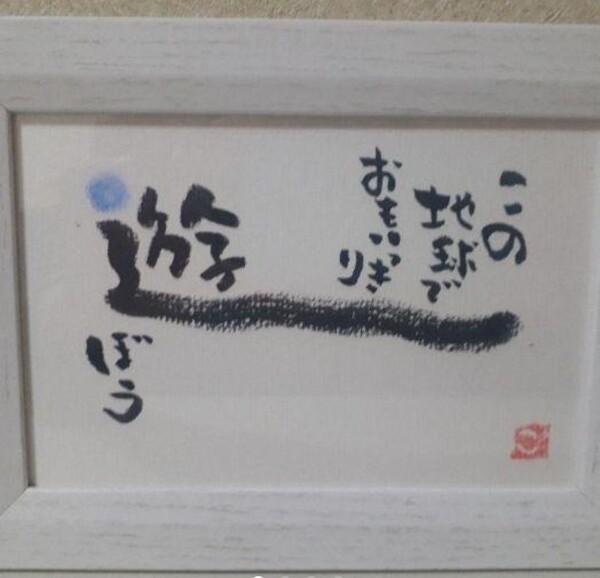 この
地球で
おもいっきり
遊
ぼう